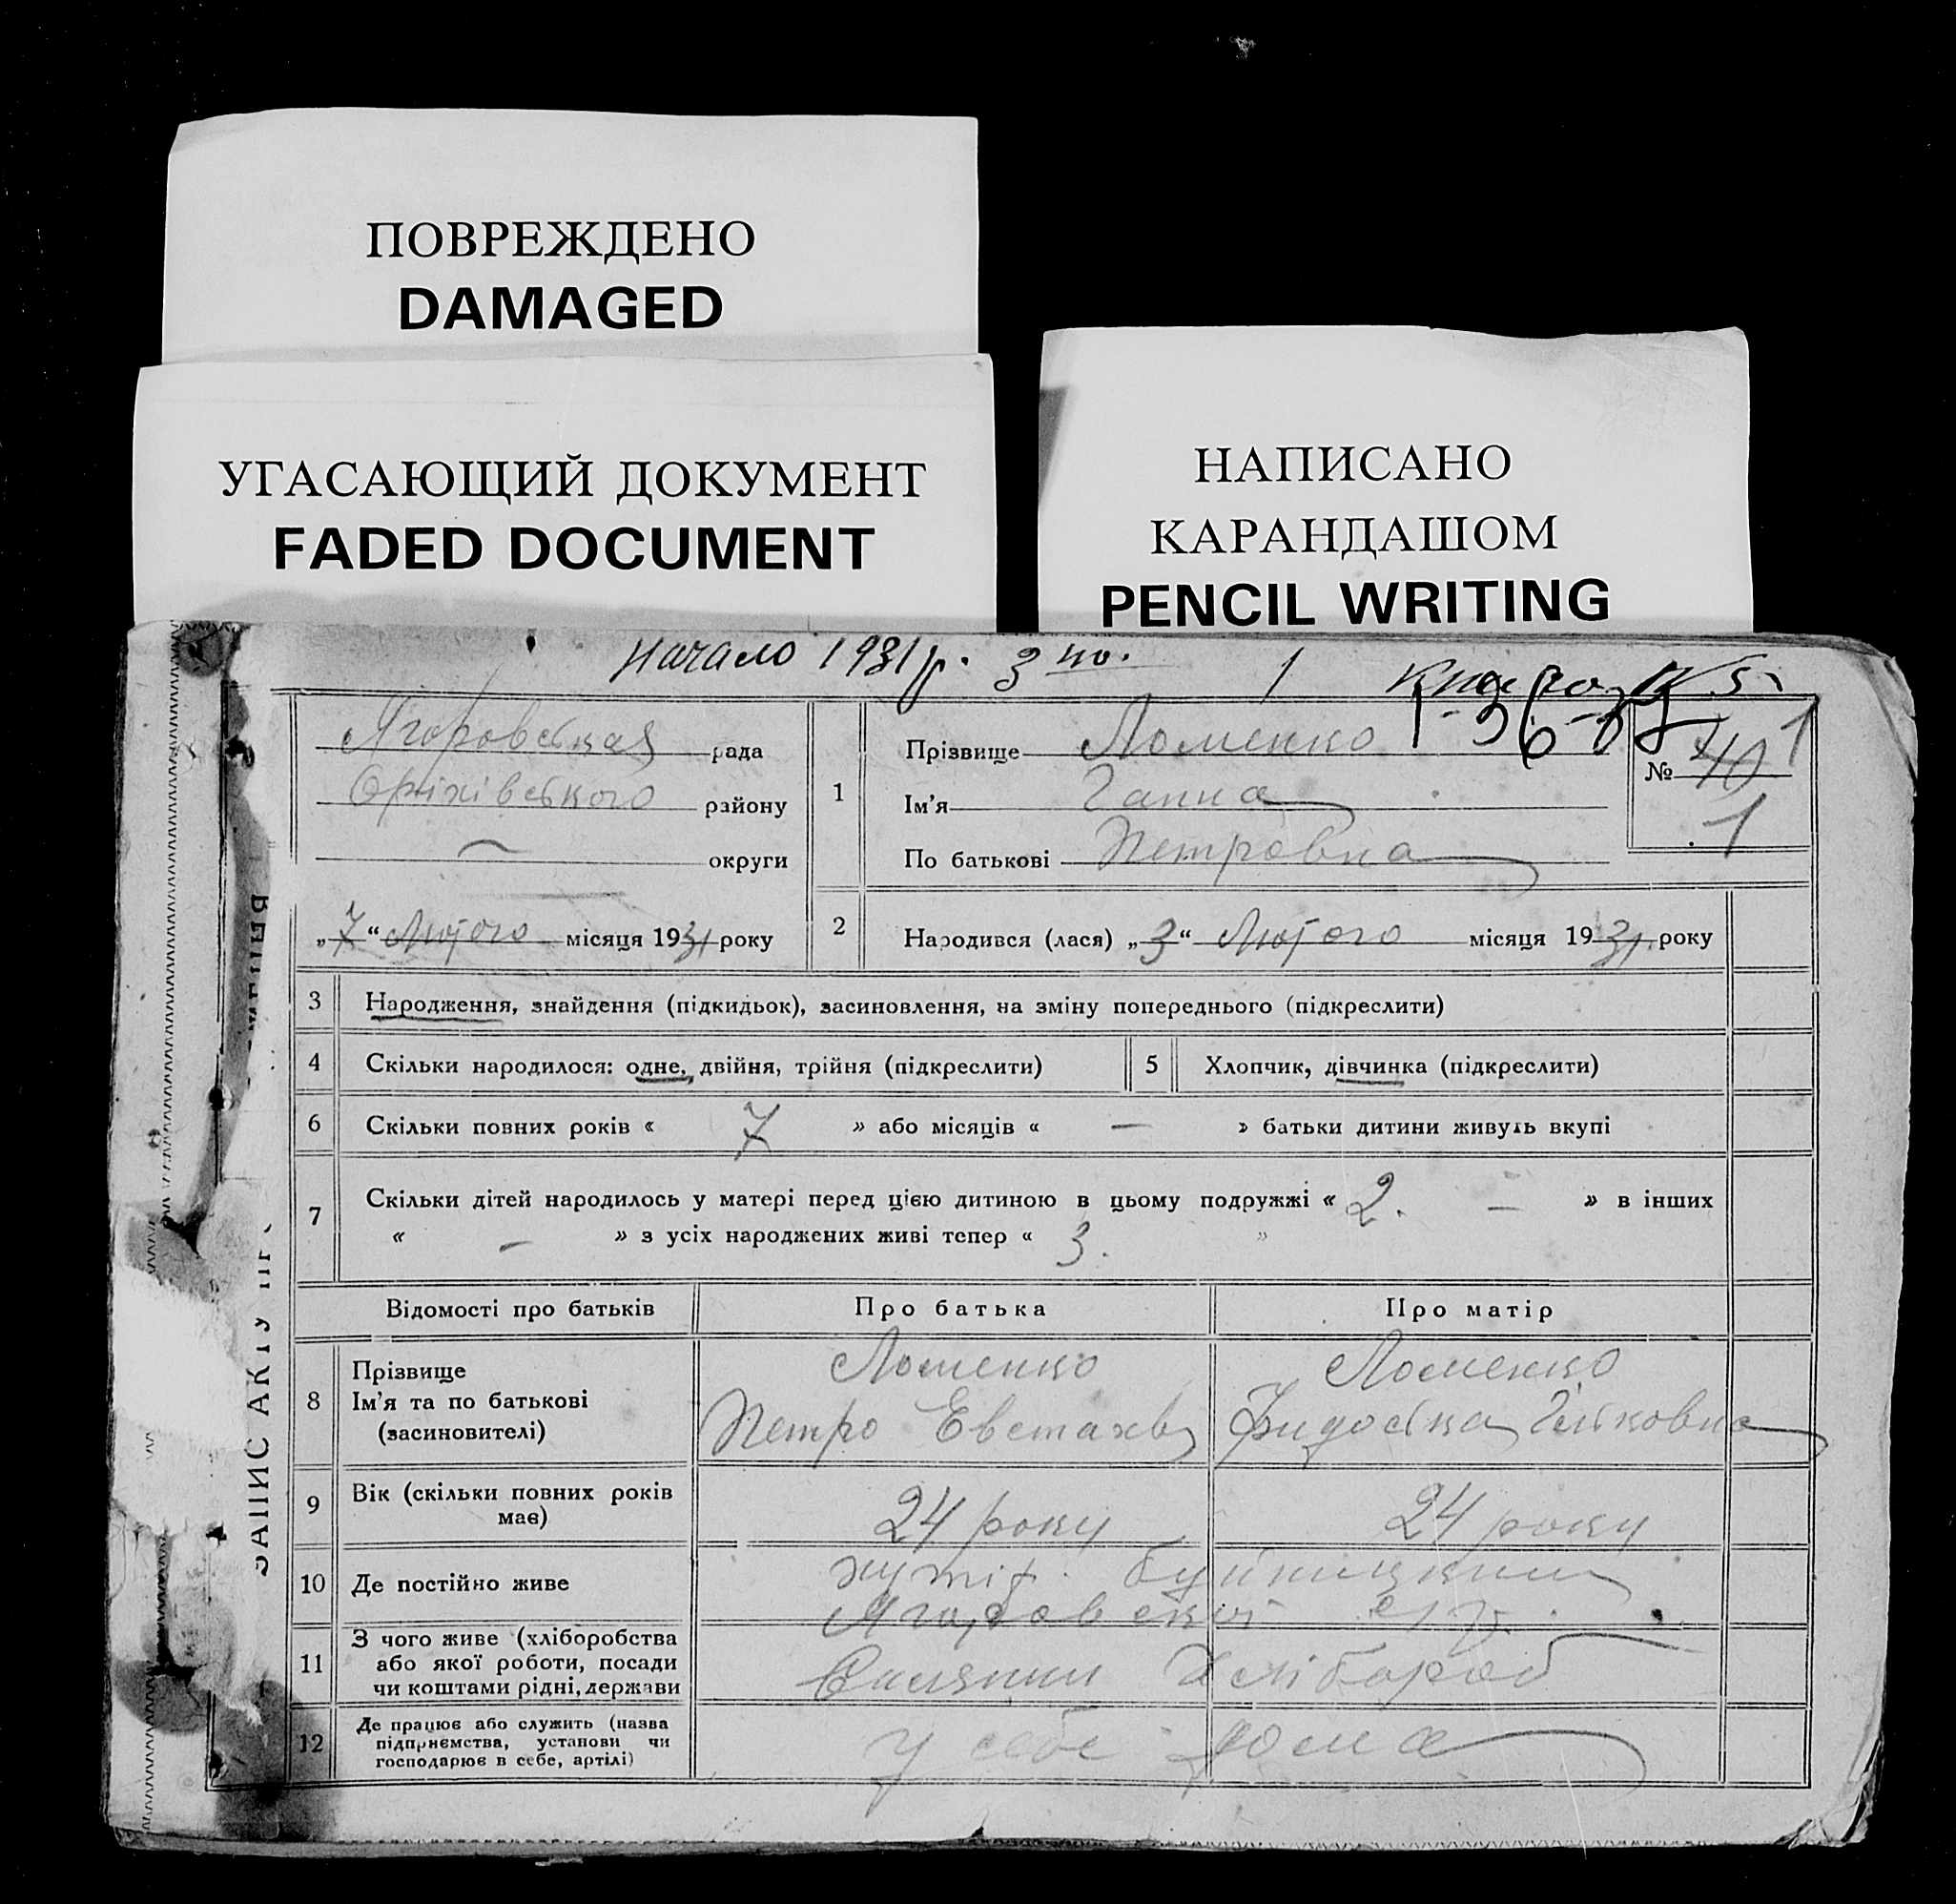 ПОВРЕЖДЕНО
DAMAGED
УГАСАЮЩИЙ ДОКУМЕНТ
FADED DOCUMENT
НАПИСАНО
КАРАНДАШОМ
PENCIL WRITING
Начало 1931 р. 3 1
Ягоровская рада
Оріхівського району
— округи
„7“ Лютого місяця 1931 року
1 Прізвище Ломенко
Ім'я Ганна
По батькові Петровна
№ 40
1
2 Народився (лася) „3“ Лютого місяця 1931 року
3 Народження, знайдення (підкидьок), засиновлення, на зміну попереднього (підкреслити)
4 Скільки народилося: одне, двійня, трійня (підкреслити) 5 Хлопчик, дівчинка (підкреслити)
6 Скільки повних років « 7 » або місяців « — » батьки дитини живуть вкупі
7 Скільки дітей народилось у матері перед цією дитиною в цьому подружжі « 2. — » в інших
« — » з усіх народжених живі тепер « 3. »
Відомості про батьків Про батька Про матір
8 Прізвище
Ім'я та по батькові
(засиновителі)
Ломенко
Петро
Ломенко
9 Вік (скільки повних років
має)
24 року 24 року
10 Де постійно живе
11 З чого живе (хліборобства
або якої роботи, посади
чи коштами рідні, держави
Хлібороб
12 Де працює або служить (назва
підприємства, установи чи
господарює в себе, артілі)
у себе дома
ЗАПИС АКТУ ПРО